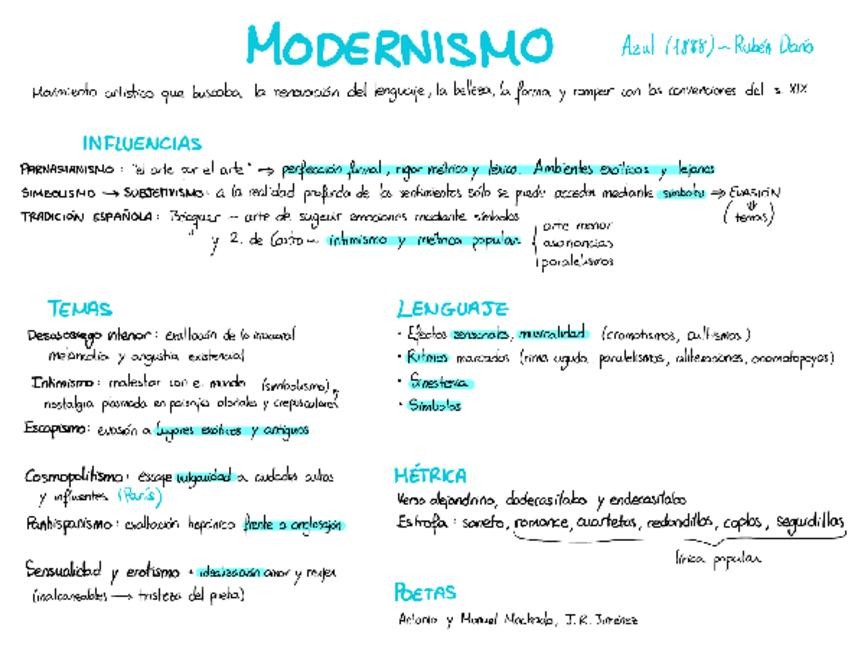 MODERNISMO
Azul (1888) ~ Rubén Darío
Movimiento artístico que buscaba la renovación del lenguaje, la belleza, la forma y romper con las convenciones del s. XIX
INFLUENCIAS
PARNASIANISMO: "el arte por el arte" → perfección formal, rigor métrico y léxico. Ambientes exóticos y lejanos
SIMBOLISMO → SUBJETIVISMO: a la realidad profunda de los sentimientos sólo se puede acceder mediante símbolos ⇒ EVASIÓN
(temas)
TRADICIÓN ESPAÑOLA: Bécquer – arte de sugerir emociones mediante símbolos
" y R. de Castro – intimismo y métrica popular
arte menor
asonancias
paralelismos
TEMAS
Desasosiego interior: exaltación de lo irracional
melancolía y angustia existencial
Intimismo: malestar con el mundo (simbolismo),
nostalgia plasmada en paisajes otoñales y crepusculares
Escapismo: evasión a lugares exóticos y antiguos
Cosmopolitismo: escape vulgaridad a ciudades cultas
y influentes (París)
Panhispanismo: exaltación hispánico frente a anglosajón
Sensualidad y erotismo: idealización amor y mujer
(inalcanzables → tristeza del poeta)
LENGUAJE
· Efectos sensoriales, musicalidad (cromatismos, cultismos)
· Ritmos marcados (rima aguda, paralelismos, aliteraciones, onomatopeyas)
· Sinestesia
· Símbolos
MÉTRICA
Verso alejandrino, dodecasílabo y endecasílabo
Estrofa: soneto, romance, cuartetas, redondillas, coplas, seguidillas
lírica popular
POETAS
Antonio y Manuel Machado, J.R. Jiménez